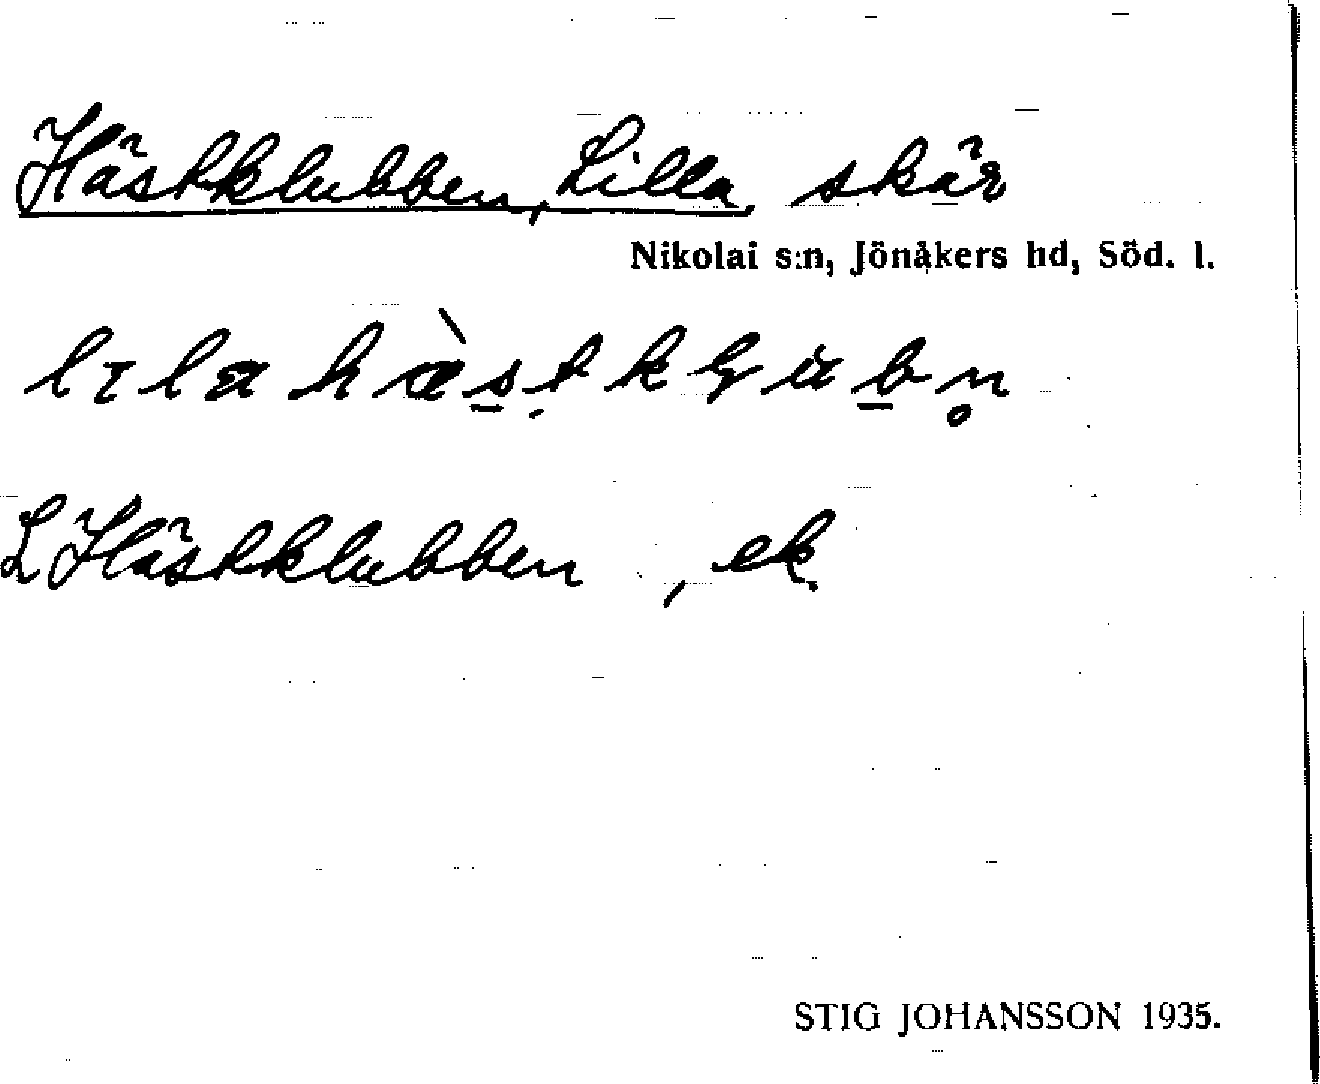 Hästklubben, Lilla skär
Nikolai s:n, Jönåkers hd, Söd. l.
lɪla hæ̀s̱ṭkɭub̠n̥
L Hästklubben, ek.
STIG JOHANSSON 1935.